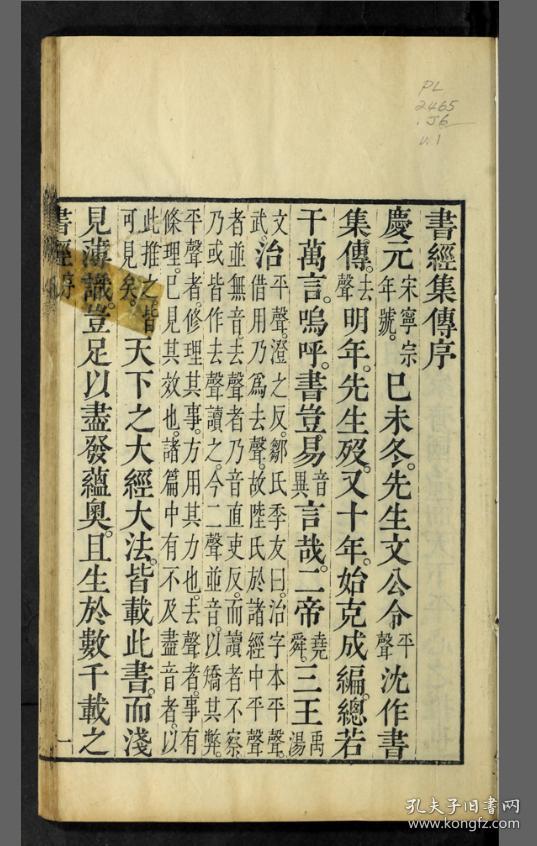 PL
2465
.J6
v.1
書經集傳序
慶元宋寧宗年號。巳未冬。先生文公令平聲沈作書
集傳。去聲明年。先生歿。又十年。始克成編。總若
干萬言。嗚呼。書豈易音異言哉。二帝堯舜。三王禹湯
文武。治平聲。澄之反。鄒氏季友曰。治字本平聲。借用乃爲去聲。故陸氏於諸經中平聲
者並無音。去聲者乃音直吏反。而讀者不察。乃或皆作去聲讀之。今二聲並音。以矯其弊。
平聲者。修理其事。方用其力也。去聲者。事有條理。已見其效也。諸篇中有不及盡音者。以
此推之。皆可見矣。天下之大經大法。皆載此書。而淺
見薄識。豈足以盡發蘊奧。且生於數千載之
書經序 一
孔夫子旧书网
www.kongfz.com